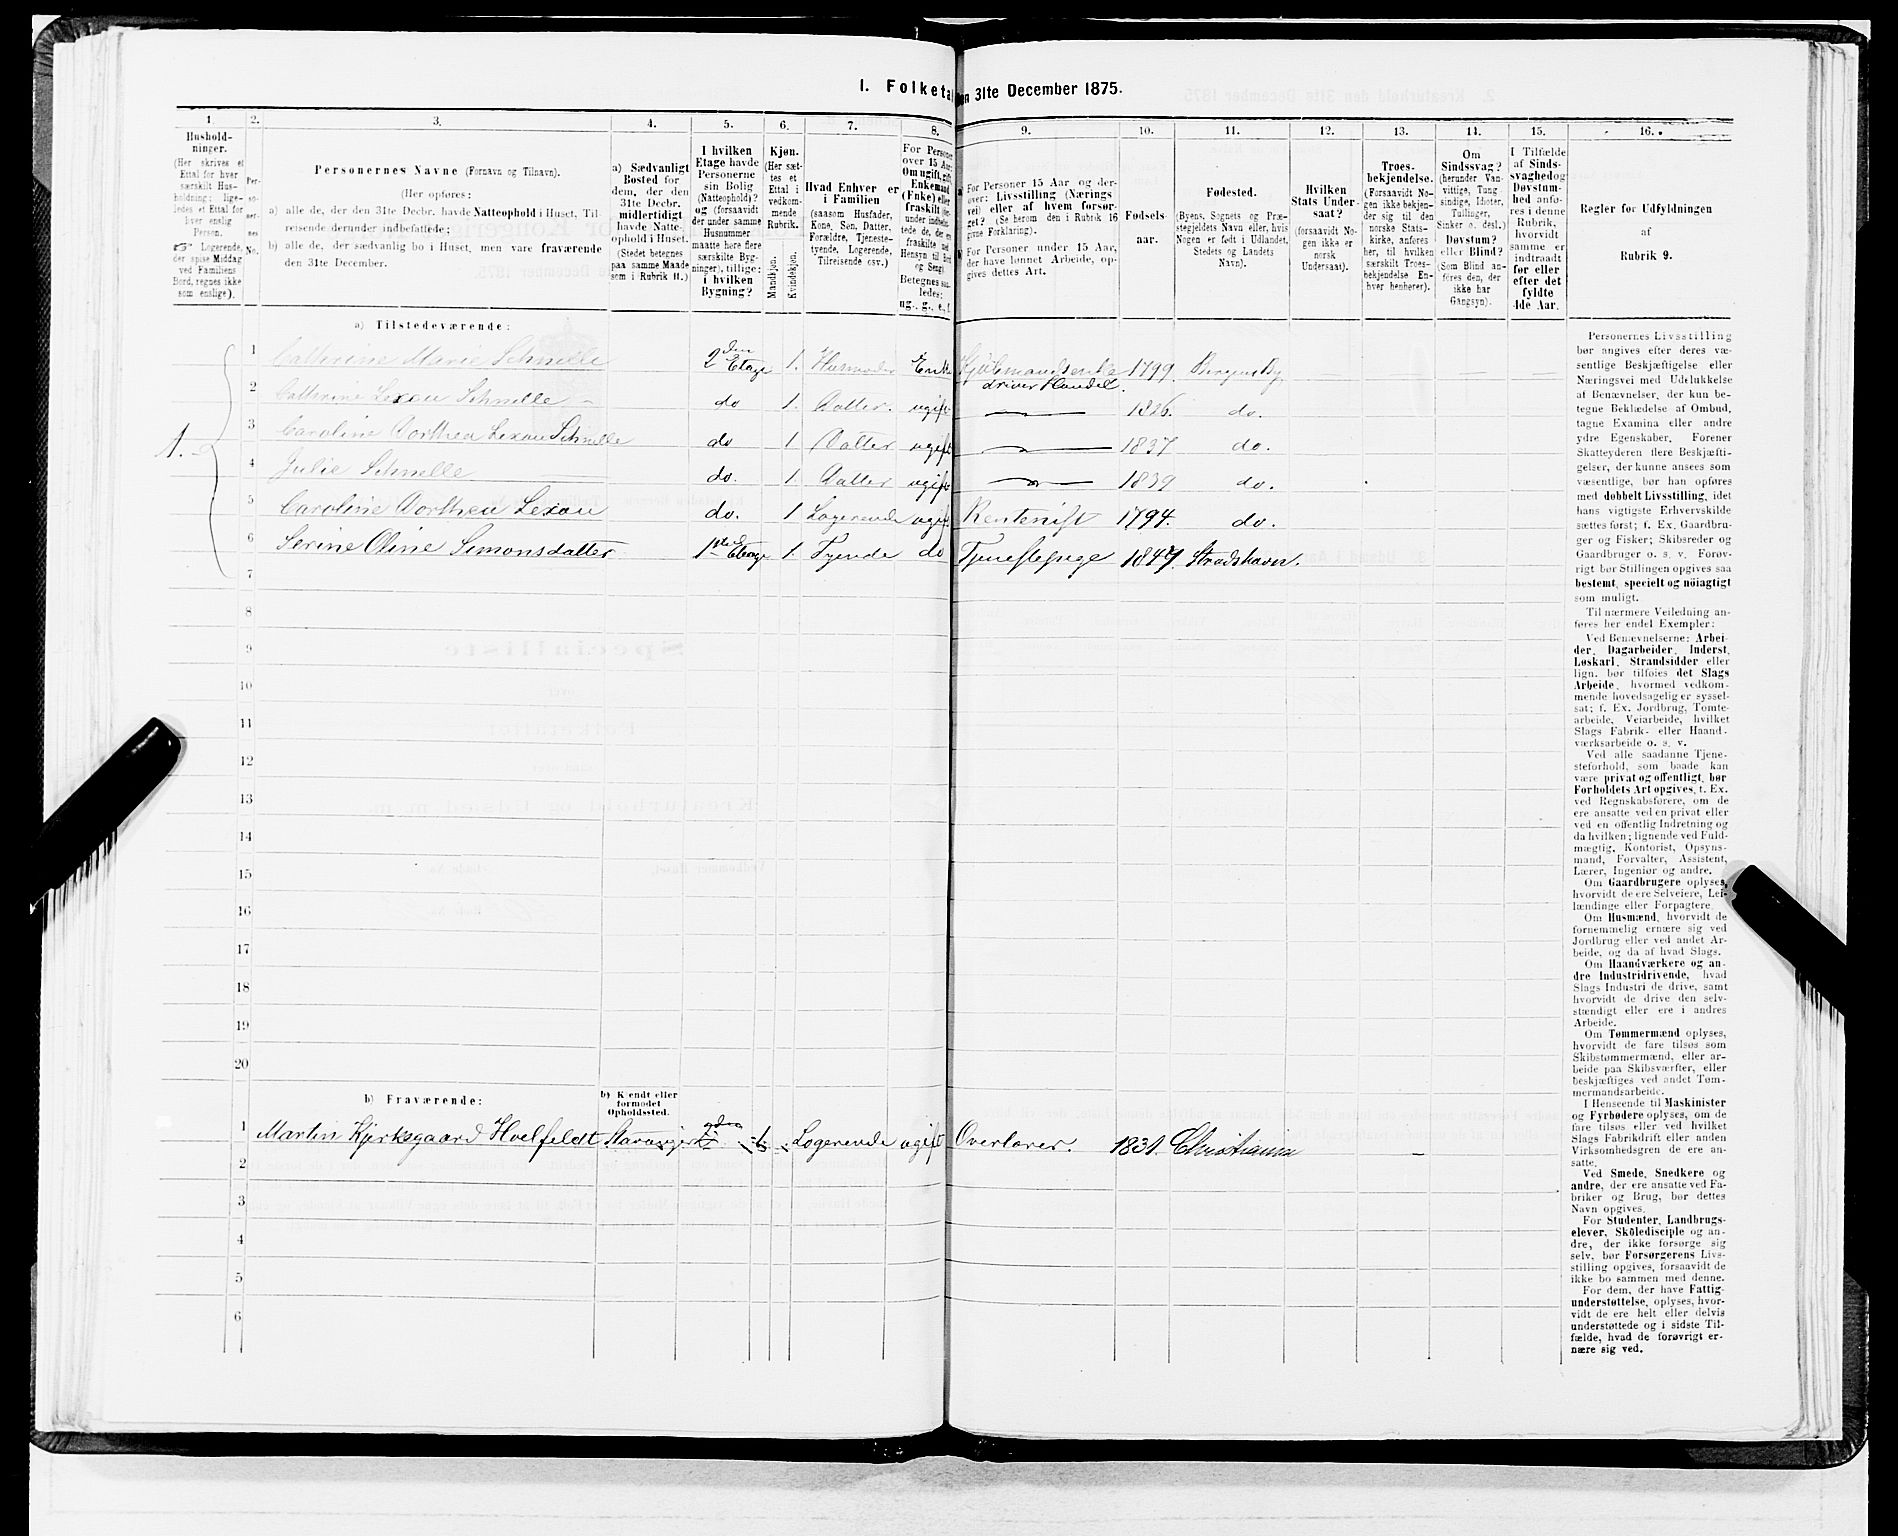 1. Folketal den 31te December 1875.
1. 2. 3. 4. 5. 6. 7. 8. 9. 10. 11. 12. 13. 14. 15. 16.
Hushold-
ninger.
(Her skrives et
Ettal for hver
særskilt Hus-
holdning; lige-
ledes et Ettal for
hver enslig
Person.
☞ Logerende,
der spise Middag
ved Familiens
Bord, regnes ikke
som enslige).
Per-
so-
ner-
nes
No.
Personernes Navne (Fornavn og Tilnavn).
(Her opføres:
a) alle de, der den 31te Decbr. havde Natteophold i Huset, Til-
reisende derunder indbefattede;
b) alle de, der sædvanlig bo i Huset, men vare fraværende
den 31te December.
a) Sædvanligt
Bosted for
dem, der den
31te Decbr.
midlertidigt
havde Natte-
ophold i Huset.
(Stedet betegnes
paa samme Maade
som i Rubrik 11.)
I hvilken
Etage havde
Personerne
sin Bolig
(Natteophold)?
og (forsaavidt
der under samme
Husnummer
maatte høre flere
særskilte Byg-
ninger), tillige:
i hvilken
Bygning?
Kjøn.
(Her sæt-
tes et
Ettal i
vedkom-
mende
Rubrik.
Mandkjøn.
Kvindekjøn.
Hvad Enhver er
i Familien
(saasom Husfader,
Kone, Søn, Datter,
Forældre, Tjeneste-
tyende, Logerende,
Tilreisende osv.)
For Personer
over 15 Aar:
Om ugift, gift,
Enkemand
(Enke) eller
fraskilt
Betegnes saa-
ledes:
ug., g., e., f.
For Personer 15 Aar og der-
over: Livsstilling (Nærings-
vei) eller af hvem forsør-
get? (Se herom den i Rubrik 16
givne Forklaring).
For Personer under 15 Aar,
der have lønnet Arbeide, op-
gives dettes Art.
Fødsels-
aar.
Fødested.
(Byens, Sognets og Præ-
stegjeldets Navn eller, hvis
Nogen er født i Udlandet,
Stedets og Landets
Navn).
Hvilken
Stats Under-
saat?
(forsaavidt No-
gen ikke er
norsk
Undersaat).
Troes-
bekjendelse.
(Forsaavidt No-
gen ikke bekjen-
der sig til den
norske Stats-
kirke, anføres
her, til hvilken
særskilt Troes-
bekjendelse En-
hver henhører).
Om
Sindssvag?
(herunder Van-
vittige, Tung-
sindige, Idioter,
Tullinger,
Sinker o. desl.)
Døvstum?
eller Blind?
(Som Blind an-
føres den, der
ikke har
Gangsyn).
I Tilfælde
af Sinds-
svaghed og
Døvstum-
hed anfø-
res i denne
Rubrik,
hvorvidt
samme er
indtraadt
før eller
efter det
fyldte
4de Aar.
Regler for Udfyldningen
af
Rubrik 9.
a) Tilstedeværende:
1 Cathrine Marie Schnelle 2den Etage 1. Husmoder Enke Kjøbmandsenke driver Handel. 1799. Bergens By
2 Cathrine Lexau Schnelle do 1. Datter. ugift 1826. do.
3 Caroline Dorthea Lexau Schnelle do 1 Datter ugift 1837 do.
1. 4 Julie Schnelle do. 1 Datter ugift 1839 do.
5 Caroline Dorthea Lexau do. 1 Logerende ugift Rentenist 1794. do.
6 Serine Oline Simonsdatter 1ste Etage 1. Tyende do Tjenestepige 1847. Stradshavn.
7
8
9
10
11
12
13
14
15
16
17
18
19
20
b) Fraværende:
b) Kjendt eller
formodet
Opholdssted.
1 Martin Kjerksgaard Hvelfeldt Stavanger 1. Logerende ugift Overlærer. 1831. Christiania
2
3
4
5
6
Personernes Livsstilling
bør angives efter deres væ-
sentlige Beskjæftigelse eller
Næringsvei med Udelukkelse
af Benævnelser, der kun be-
tegne Beklædelse af Ombud,
tagne Examina eller andre
ydre Egenskaber. Forener
Skatteyderen flere Beskjæfti-
gelser, der kunne ansees som
væsentlige, bør han opføres
med dobbelt Livsstilling, idet
hans vigtigste Erhvervskilde
sættes først; f. Ex. Gaardbru-
ger og Fisker; Skibsreder og
Gaardbruger o. s. v. Forøv-
rigt bør Stillingen opgives saa
bestemt, specielt og nøiagtigt
som muligt.
Til nærmere Veiledning an-
føres her endel Exempler:
Ved Benævnelserne: Arbei-
der, Dagarbeider, Inderst,
Løskarl, Strandsidder eller
lign. bør tilføies det Slags
Arbeide, hvormed vedkom-
mende hovedsagelig er syssel-
sat; f. Ex. Jordbrug, Tomte-
arbeide, Veiarbeide, hvilket
Slags Fabrik- eller Haand-
værksarbeide o. s. v.
Ved alle saadanne Tjene-
steforhold, som baade kan
være privat og offentligt, bør
Forholdets Art opgives, f. Ex.
ved Regnskabsførere, om de
ere ansatte ved en privat eller
ved en offentlig Indretning og
da hvilken; lignende ved Fuld-
mægtig, Kontorist, Opsyns-
mand, Forvalter, Assistent,
Lærer, Ingeniør og andre.
Om Gaardbrugere oplyses,
hvorvidt de ere Selveiere, Lei-
lændinge eller Forpagtere.
Om Husmænd, hvorvidt de
fornemmelig ernære sig ved
Jordbrug eller ved andet Ar-
beide, og da af hvad Slags.
Om Haandværkere og an-
dre Industridrivende, hvad
Slags Industri de drive, samt
hvorvidt de drive den selv-
stændigt eller ere i andres
Arbeide.
Om Tømmermænd oplyses,
hvorvidt de fare tilsøs som
Skibstømmermænd, eller ar-
beide paa Skibsværfter, eller
beskjæftiges ved andet Tøm-
mermandsarbeide.
I Henseende til Maskinister
og Fyrbødere oplyses, om de
fare tilsøs eller ved hvilket
Slags Fabrikdrift eller anden
Virksomhedsgren de ere an-
satte.
Ved Smede, Snedkere og
andre, der ere ansatte ved Fa-
briker og Brug, bør dettes
Navn opgives.
For Studenter, Landbrugs-
elever, Skoledisciple og an-
dre, der ikke forsørge sig
selv, bør Forsørgerens Livs-
stilling opgives, forsaavidt de
ikke bo sammen med denne.
For dem, der have Fattig-
understøttelse, oplyses, hvor-
vidt de ere helt eller delvis
understøttede og i sidste Til-
fælde, hvad de forøvrigt er-
nære sig ved.